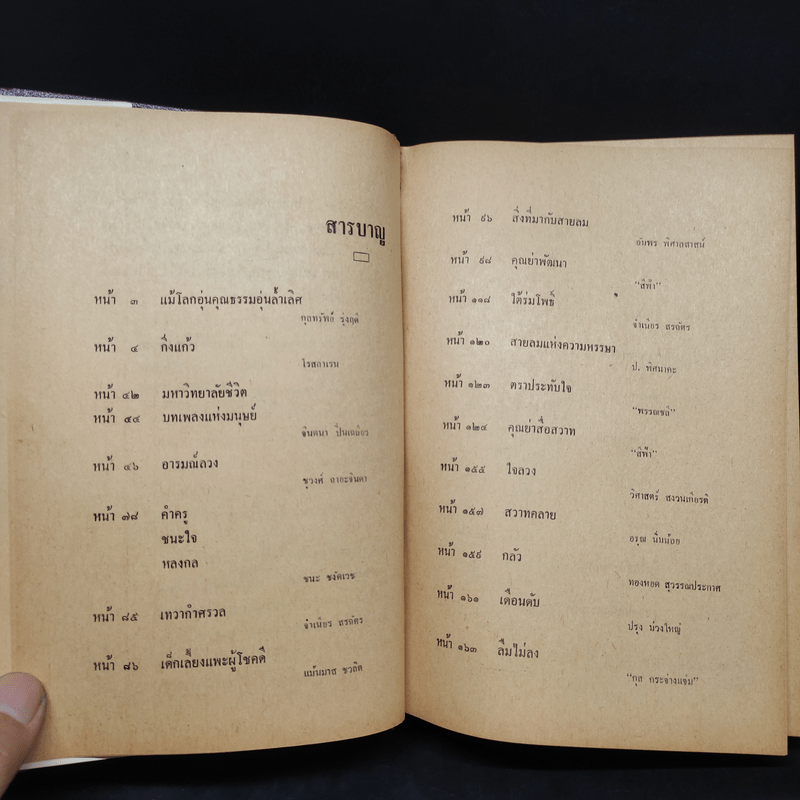 สารบาญ
หน้า ๓ แม้โลกอุ่นคุณธรรมอุ่นล้ำเลิศ
กุลทรัพย์ รุ่งฤดี
หน้า ๔ กิ่งแก้ว
โรสลาเรน
หน้า ๔๒ มหาวิทยาลัยชีวิต
หน้า ๔๔ บทเพลงแห่งมนุษย์
จินตนา ปิ่นเฉลียว
หน้า ๔๖ อารมณ์ลวง
ชูวงศ์ ฉายะจินดา
หน้า ๗๘ คำครู
ชนะใจ
หลงกล
ชนะ ชงัดเวช
หน้า ๘๕ เทวากำศรวล
จำเนียร สรฉัตร
หน้า ๘๖ เด็กเลี้ยงแพะผู้โชคดี
แม้นมาส ชวลิต
หน้า ๙๖ สิ่งที่มากับสายลม
อัมพร พิศาลสาสน์
หน้า ๙๘ คุณย่าพัฒนา
"สีฟ้า"
หน้า ๑๑๘ ใต้ร่มโพธิ์
จำเนียร สรฉัตร
หน้า ๑๒๐ สายลมแห่งความหรรษา
ป. พิศนาคะ
หน้า ๑๒๓ ตราประทับใจ
"พรรณชลี"
หน้า ๑๒๔ คุณย่าสื่อสวาท
"สีฟ้า"
หน้า ๑๕๕ ใจลวง
วิศาสตร์ สงวนเกียรติ
หน้า ๑๕๗ สวาทคลาย
อรุณ นิ่มน้อย
หน้า ๑๕๙ กลัว
ทองหยด สุวรรณประกาศ
หน้า ๑๖๑ เดือนดับ
ปรุง ม่วงใหญ่
หน้า ๑๖๓ ลืมไม่ลง
"กุล กระจ่างแจ่ม"